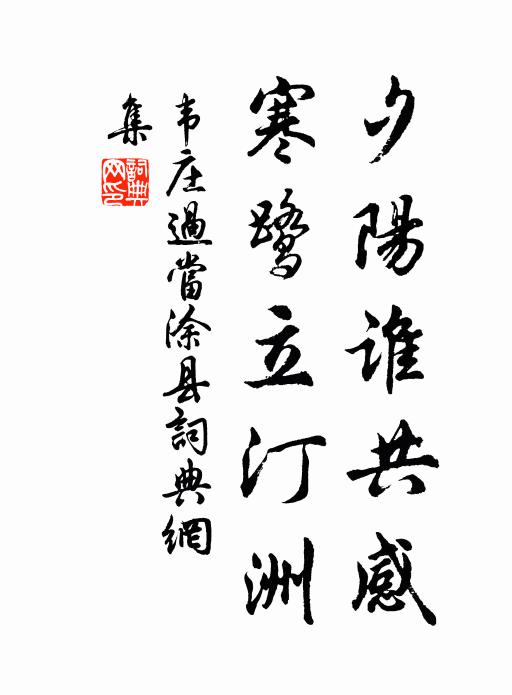 夕陽谁共感
寒鹭立汀洲
韦庄過當涂县詞典網
集
詞典網印